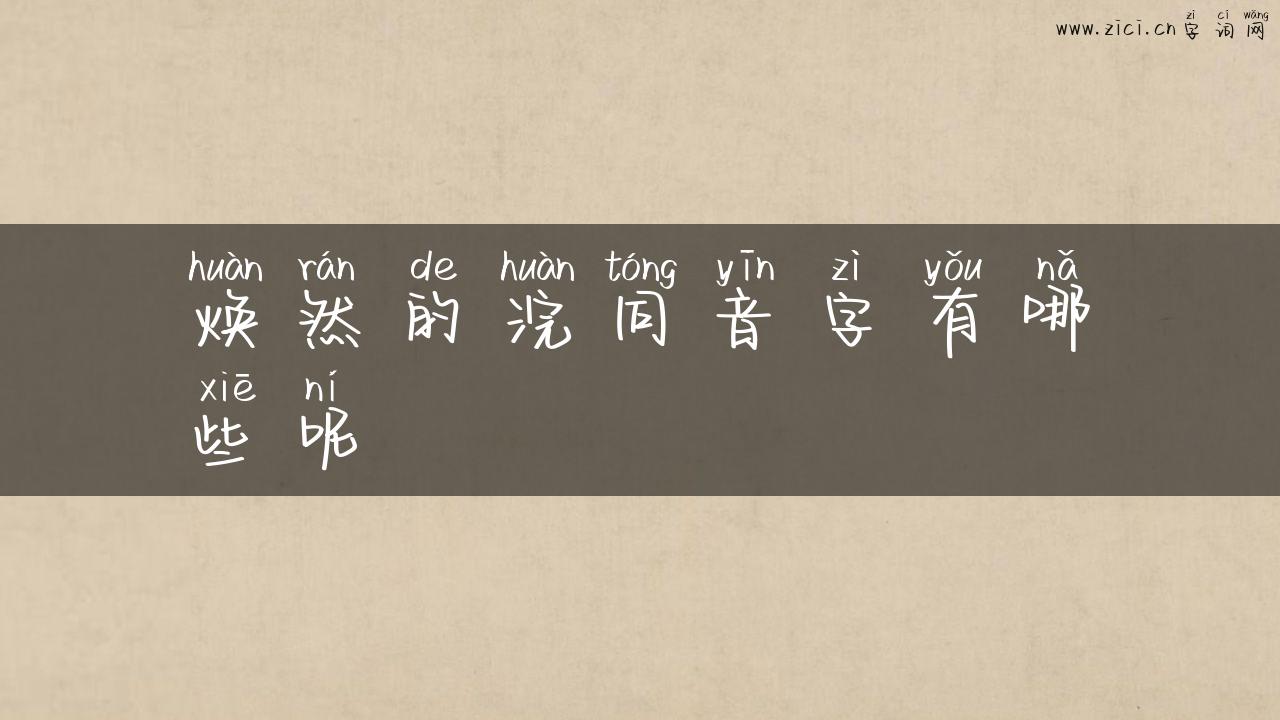 zì cí wǎng
www.zici.cn 字词网
huàn rán de huàn tóng yīn zì yǒu nǎ
焕然的浣同音字有哪
xiē ní
些呢